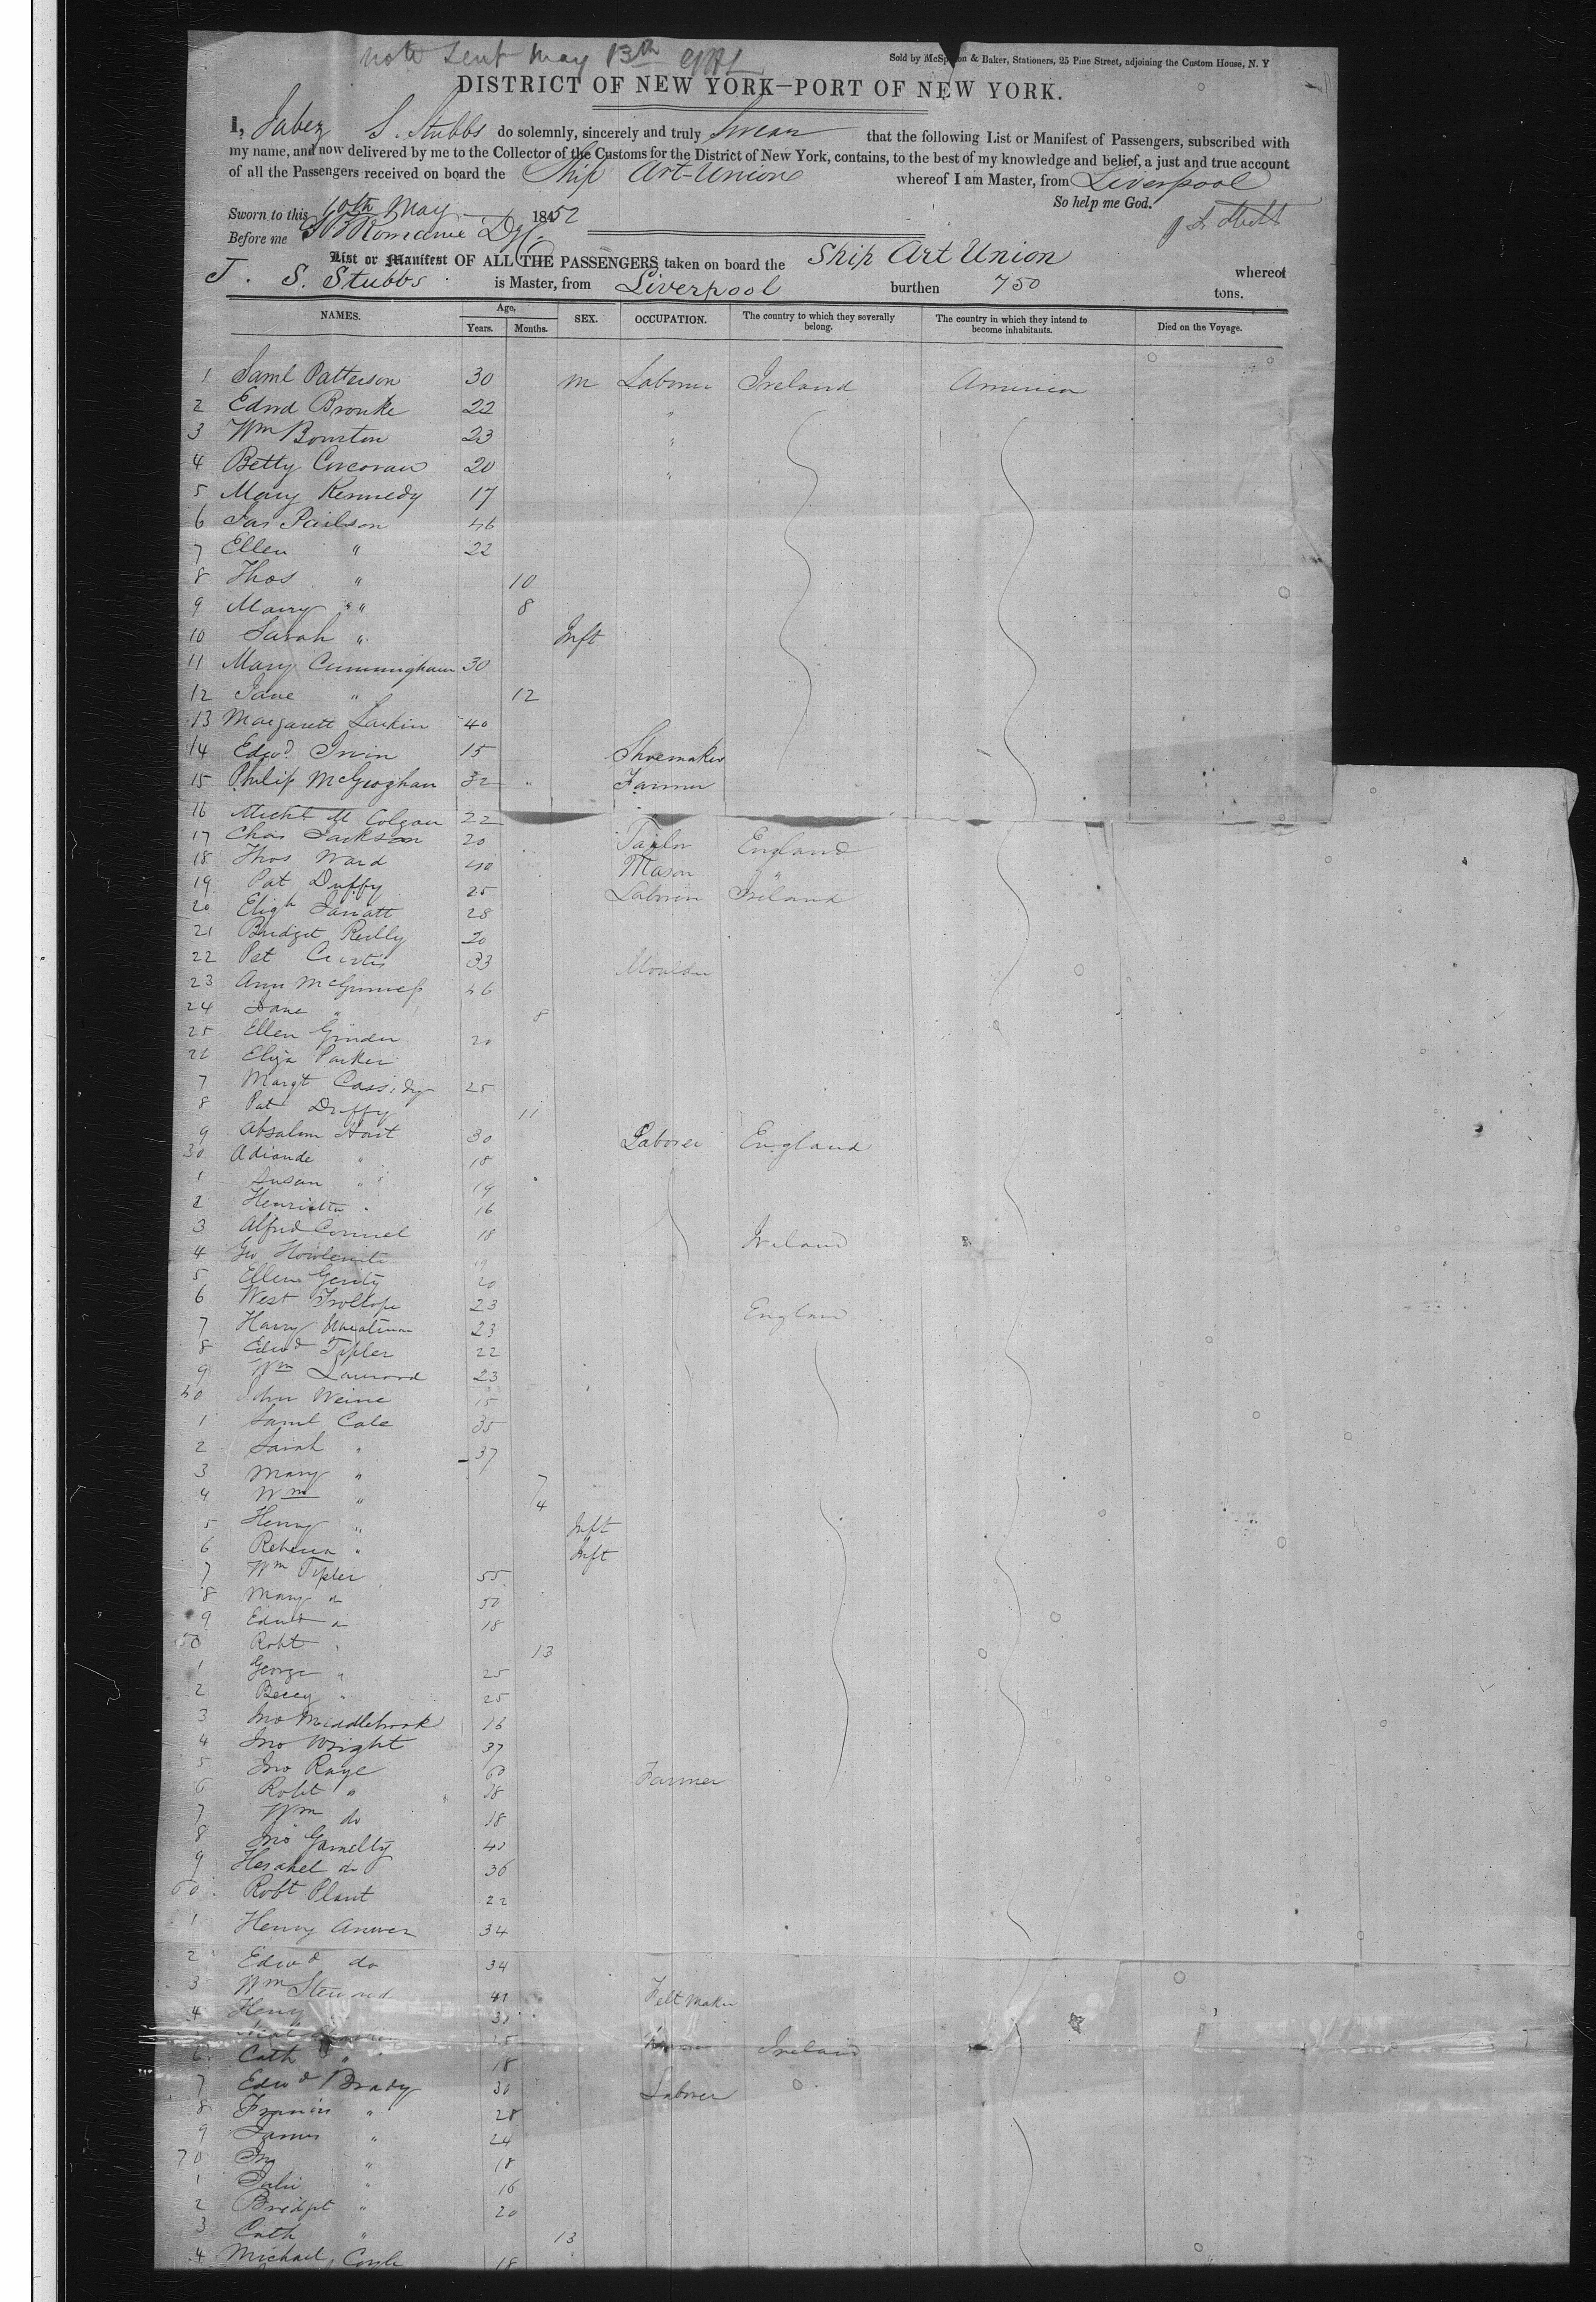 note sent May 13th
Sold by McSp on & Baker, Stationers, 25 Pine Street, adjoining the Custom House, N. Y
DISTRICT OF NEW YORK—PORT OF NEW YORK.
I, Jabez S. Stubbs do solemnly, sincerely and truly Swear that the following List or Manifest of Passengers, subscribed with
my name, and now delivered by me to the Collector of the Customs for the District of New York, contains, to the best of my knowledge and belief, a just and true account
of all the Passengers received on board the Ship Art-Union whereof I am Master, from Liverpool
So help me God.
Sworn to this 10th May 1852
Before me
List or Manifest OF ALL THE PASSENGERS taken on board the Ship Art Union whereof
J. S. Stubbs is Master, from Liverpool burthen 750 tons.
NAMES. Age, Years. Months. SEX. OCCUPATION. The country to which they severally belong. The country in which they intend to become inhabitants. Died on the Voyage.
1 Saml Patterson 30 m Laborer Ireland America
2 Edwd Bronke 22 "
3 Wm Bourton 23 "
4 Betty Corcoran 20 "
5 Mary Kennedy 17
6 Jas 46
7 Ellen " 22
8 Thos " 10
9 Mary " " 8
10 Sarah " Inft
11 Mary Cunningham 30
12 Jane " 12
13 Margarett Larkin 40
14 Edwd Irwin 15 Shoemaker
15 Philip McGeoghan 32 " Farmer
16 Michl Mc Colgan 22
17 Chas Jackson 20 Tailor England
18 Thos Ward 40 Mason "
19 Pat Duffy 25 Laborer Ireland
20 Eligh Jarratt 28
21 Bridget Reilly 20
22 Pat Curtis 33 Moulder
23 Ann McGinness 46
24 Jane " 8
25 Ellen Grinder 20
26 Eliza Parker
7 Margt Cassidy 25
8 Pat Duffy 11
9 Absalom Hart 30 Laborer England
30 " 18
1 Susan " 19
2 Henrietta " 16
3 Alfred Connel 18 Ireland
4 Geo
5 Ellen Gerity 20
6 West Trollope 23 England
7 Harry 23
8 Edwd Tipler 22
9 Wm 23
40 John Weine 15
1 Saml Cale 35
2 Sarah " 37
3 Mary " 7
4 Wm " 4
5 Henry " Inft
6 Rebecca " Inft
7 Wm Tipler 55
8 Mary do 50
9 Edwd do 18
50 Robt " 13
1 George " 25
2 Beccy " 25
3 Jno Middlebrook 16
4 Jno Wright 37
5 Jno Raye 60 Farmer
6 Robt " 18
7 Wm do 18
8 Jno Gamelty
9 do 36
60 Robt Plant 22
1 Henry 34
2 Edwd do 34
3 Wm Steward 41 Felt Maker
4 Henry
25 Ireland
6 Cath " 18
7 Edwd Brady 30 Laborer
8 Francis " 28
9 James " 24
70 Jno " 18
1 Julia " 16
2 Bridget " 20
3 Cath " 13
4 Michael Coyle 18